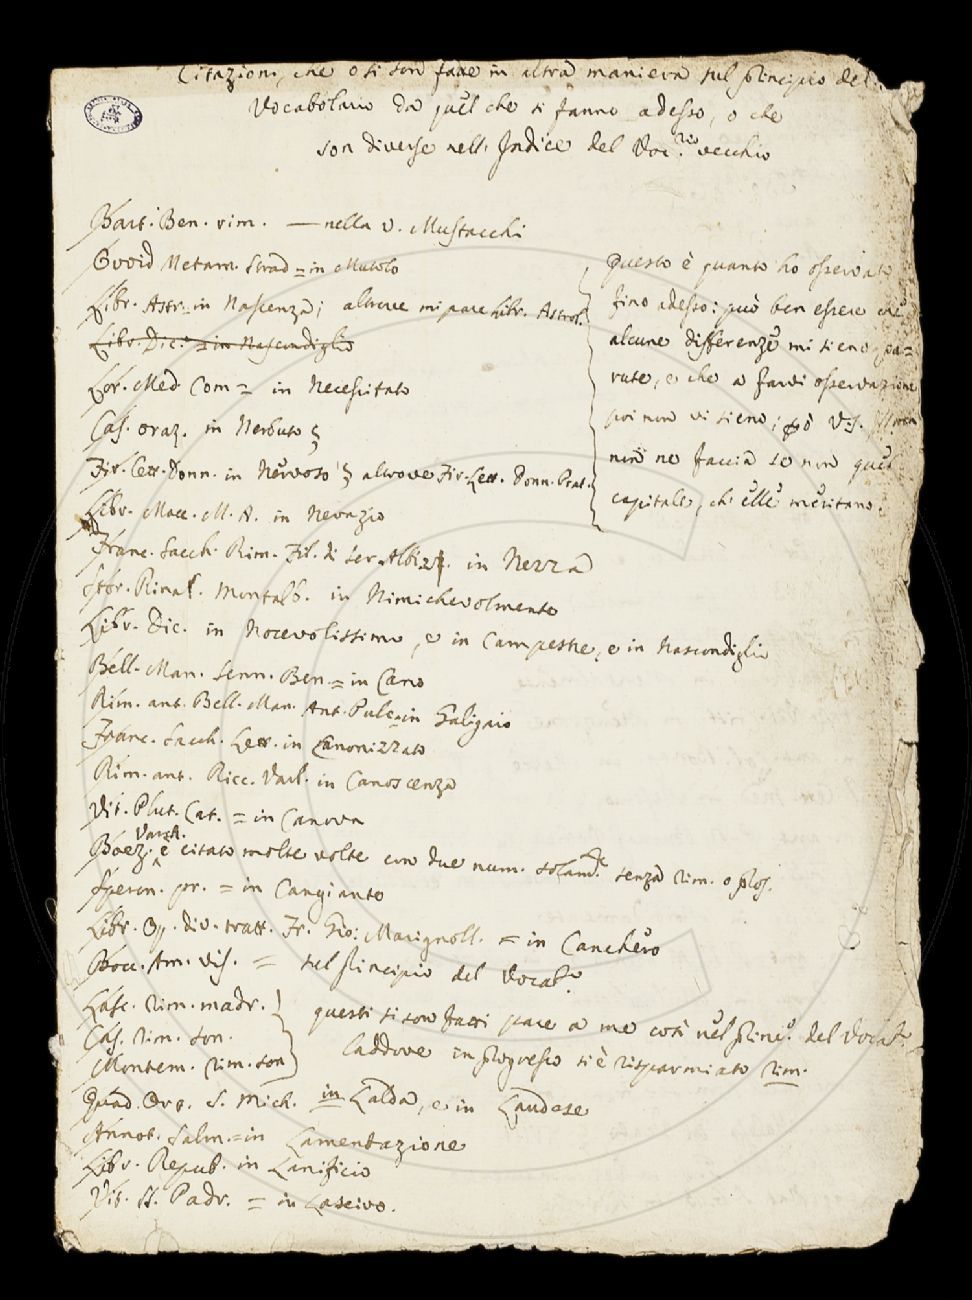 Citazioni, che o si son fatte in altra maniera sul principio del
Vocabolario da quel che si fanno adesso, o che
son diverse nell' Indice del Voc.rio vecchio
Bart. Ben. rim. — nella v. Mustacchi
Ovvid Metam. Strad = in Mutolo
Libr. Astr. = in Nascenza; altrove mi pare Libr. Astrol.
Libr. Dic. = in Nascondiglio
Lor. Med. Com = in Necessitato
Cas. oraz. in Nerbuto
Fir. Lett. Donn. in Nervoso altrove Fir. Lett. Donn. Prat.
Libr. Macc. M. A. in Nevazio
Franc. Sacch. Rim. Fil. di Ser Albizz. in Nezza
Stor. Rinal. Montalb. in Nimichevolmente
Libr. Dic. in Nocevolissimo, e in Campestre, e in Nascondiglio
Bell. Man. Senn. Ben. = in Caro
Rim. ant. Bell. Man. Ant. Pulc. = in Galigaio
Franc. Sacch. Lett. in Canonizzato
Rim. ant. Ricc. Varl. in Canoscenza
Vit. Plut. Cat. = in Canova
Boez. Varch. è citato molte volte con due num. solam.te senza rim. o pros.
Speron. or. = in Cangiante
Libr. Op. div. tratt. Fr. Gio: Marignoll. = in Canchero
Bocc. Am. Vis. = sul principio del Vocab.
Lasc. rim. madr.
Cas. rim. son.
Montem. rim. son
questi si son fatti pare a me così nel princ.° del Vocab.
laddove in progresso si è risparmiato rim.
Quad. Orp. S. Mich. in Lalda, e in Laudese
Annot. Salm. = in Lamentazione
Libr. Repub. in Lanificio
Vit. SS. Padr. = in Lascivo.
Questo è quanto ho osservato
fino adesso: può ben essere che
alcune differenze mi sieno pa-
rute, e che a farvi osservazione
poi non vi sieno; però V.S. Ill.ma
non ne faccia se non quel
capitale, ch' elle meritano.